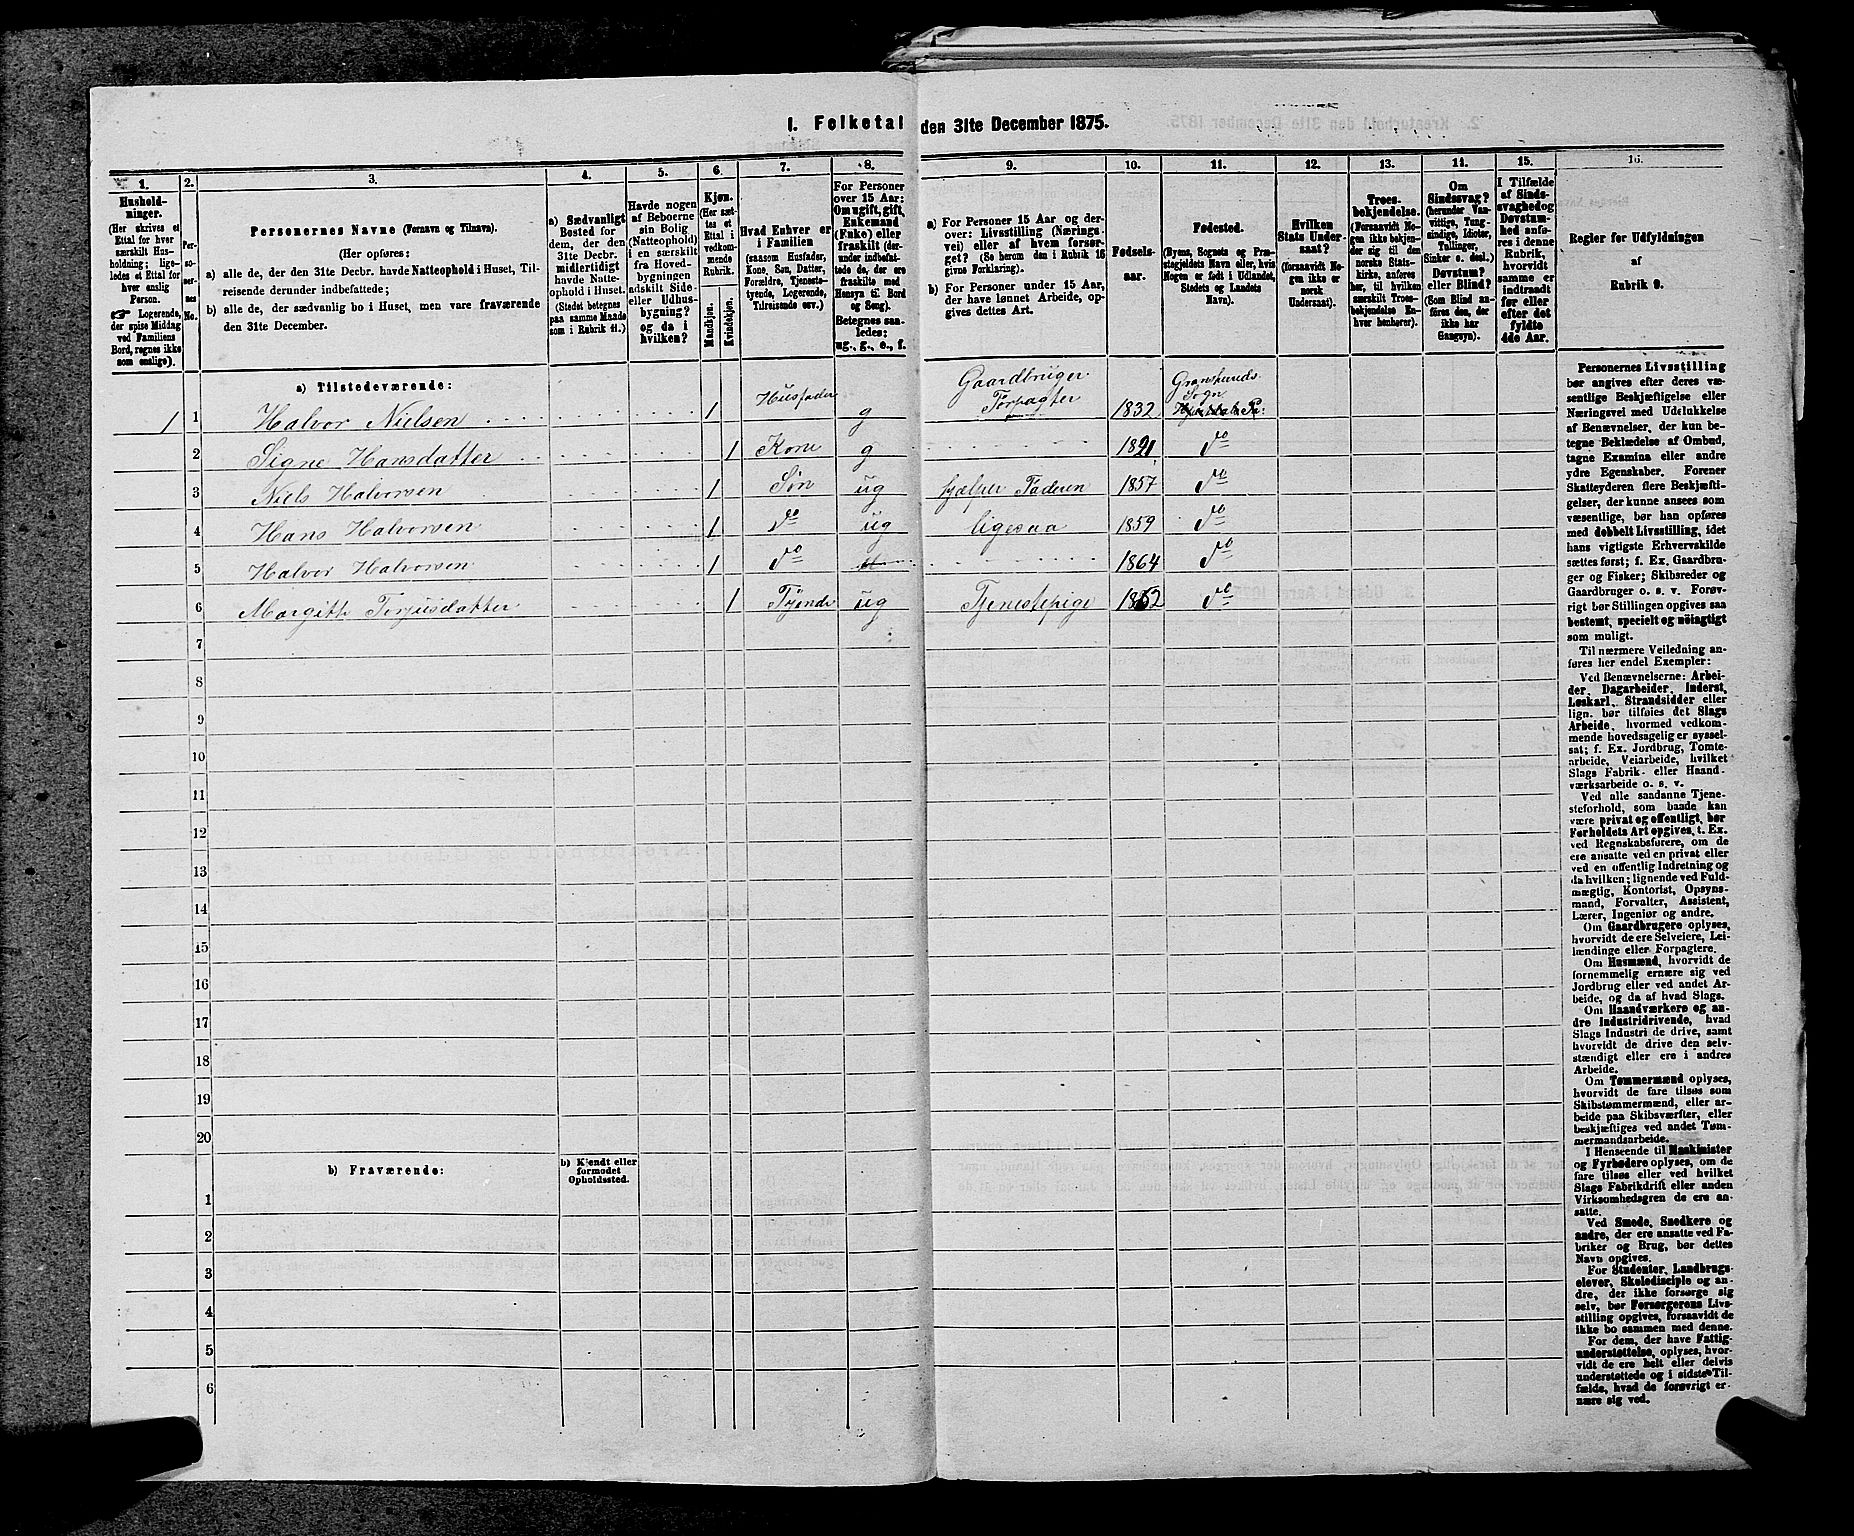 1. Folketal den 31te December 1875.
1.
Hushold-
ninger.
(Her skrives et
Ettal for hver
særskilt Hus-
holdning; lige-
ledes et Ettal for
hver enslig
Person.
☞ Logerende,
der spise Middag
ved Familiens
Bord, regnes ikke
som enslige).
2.
Per-
so-
ner-
nes
No.
3.
Personernes Navne (Fornavn og Tilnavn).
(Her opføres:
a) alle de, der den 31te Decbr. havde Natteophold i Huset, Til-
reisende derunder indbefattede;
b) alle de, der sædvanlig bo i Huset, men vare fraværende
den 31te December.
4.
a) Sædvanligt
Bosted for
dem, der den
31te Decbr.
midlertidigt
havde Natte-
ophold i Huset.
(Stedet betegnes
paa samme Maade
som i Rubrik 11.)
5.
Havde nogen
af Beboerne
sin Bolig
(Natteophold)
i en særskilt
fra Hoved-
bygningen
adskilt Side-
eller Udhus-
bygning?
og da i
hvilken?
6.
Kjøn.
(Her sæt-
tes et
Ettal i
vedkom-
mende
Rubrik.
Mandkjøn.
Kvindekjøn.
7.
Hvad Enhver er
i Familien
(saasom Husfader,
Kone, Søn, Datter,
Forældre, Tjeneste-
tyende, Logerende,
Tilreisende osv.)
8.
For Personer
over 15 Aar:
Om ugift, gift,
Enkemand
(Enke) eller
fraskilt (der-
under indbefat-
tede de, der ere
fraskilte med
Hensyn til Bord
og Seng).
Betegnes saa-
ledes:
ug., g., e., f.
9.
a) For Personer 15 Aar og der-
over: Livsstilling (Nærings-
vei) eller af hvem forsør-
get? (Se herom den i Rubrik 16
givne Forklaring).
b) For Personer under 15 Aar,
der have lønnet Arbeide, op-
gives dettes Art.
10.
Fødsels-
aar.
11.
Fødested.
(Byens, Sognets og Præ-
stegjeldets Navn eller, hvis
Nogen er født i Udlandet,
Stedets og Landets
Navn).
12.
Hvilken
Stats Under-
saat?
(forsaavidt No-
gen ikke er
norsk
Undersaat).
13.
Troes-
bekjendelse.
(Forsaavidt No-
gen ikke bekjen-
der sig til den
norske Stats-
kirke, anføres
her, til hvilken
særskilt Troes-
bekjendelse En-
hver henhører).
14.
Om
Sindssvag?
(herunder Van-
vittige, Tung-
sindige, Idioter,
Tullinger,
Sinker o. desl.)
Døvstum?
eller Blind?
(Som Blind an-
føres den, der
ikke har
Gangsyn).
15.
I Tilfælde
af Sinds-
svaghed og
Døvstum-
hed anfø-
res i denne
Rubrik,
hvorvidt
samme er
indtraadt
før eller
efter det
fyldte
4de Aar.
16.
Regler for Udfyldningen
af
Rubrik 9.
a) Tilstedeværende:
1 1 Halvor Nielsen 1 Husfader g Gaardbruger Forpagter 1832 Gransherads Sogn
2 Signe Hansdatter 1 Kone g 1821 do
3 Niels Halvorsen 1 Søn ug hjælper Faderen 1857 do
4 Hans Halvorsen 1 do ug ligesaa 1859 do
5 Halvor Halvorsen 1 do 1864 do
6 Margith Terjusdatter 1 Tyende ug Tjenestepige 1852 do
7
8
9
10
11
12
13
14
15
16
17
18
19
20
b) Fraværende:
b) Kjendt eller
formodet
Opholdssted.
1
2
3
4
5
6
Personernes Livsstilling
bør angives efter deres væ-
sentlige Beskjæftigelse eller
Næringsvei med Udelukkelse
af Benævnelser, der kun be-
tegne Beklædelse af Ombud,
tagne Examina eller andre
ydre Egenskaber. Forener
Skatteyderen flere Beskjæfti-
gelser, der kunne ansees som
væsentlige, bør han opføres
med dobbelt Livsstilling, idet
hans vigtigste Erhvervskilde
sættes først; f. Ex. Gaardbru-
ger og Fisker; Skibsreder og
Gaardbruger o. s. v. Forøv-
rigt bør Stillingen opgives saa
bestemt, specielt og nøiagtigt
som muligt.
Til nærmere Veiledning an-
føres her endel Exempler:
Ved Benævnelserne: Arbei-
der, Dagarbeider, Inderst,
Løskarl, Strandsidder eller
lign. bør tilføies det Slags
Arbeide, hvormed vedkom-
mende hovedsagelig er syssel-
sat; f. Ex. Jordbrug, Tomte-
arbeide, Veiarbeide, hvilket
Slags Fabrik- eller Haand-
værksarbeide o. s. v.
Ved alle saadanne Tjene-
steforhold, som baade kan
være privat og offentligt, bør
Forholdets Art opgives, t. Ex.
ved Regnskabsførere, om de
ere ansatte ved en privat eller
ved en offentlig Indretning og
da hvilken; lignende ved Fuld-
mægtig, Kontorist, Opsyns-
mand, Forvalter, Assistent,
Lærer, Ingeniør og andre.
Om Gaardbrugere oplyses,
hvorvidt de ere Selveiere, Lei-
lændinge eller Forpagtere.
Om Husmænd, hvorvidt de
fornemmelig ernære sig ved
Jordbrug eller ved andet Ar-
beide, og da af hvad Slags.
Om Haandværkere og an-
dre Industridrivende, hvad
Slags Industri de drive, samt
hvorvidt de drive den selv-
stændigt eller ere i andres
Arbeide.
Om Tømmermænd oplyses,
hvorvidt de fare tilsøs som
Skibstømmermænd, eller ar-
beide paa Skibsværfter, eller
beskjæftiges ved andet Tøm-
mermandsarbeide.
I Henseende til Maskinister
og Fyrbødere oplyses, om de
fare tilsøs eller ved hvilket
Slags Fabrikdrift eller anden
Virksomhedsgren de ere an-
satte.
Ved Smede, Snedkere og
andre, der ere ansatte ved Fa-
briker og Brug, bør dettes
Navn opgives.
For Studenter, Landbrugs-
elever, Skoledisciple og an-
dre, der ikke forsørge sig
selv, bør Forsørgerens Livs-
stilling opgives, forsaavidt de
ikke bo sammen med denne.
For dem, der have Fattig-
understøttelse, oplyses, hvor-
vidt de ere helt eller delvis
understøttede og i sidste Til-
fælde, hvad de forøvrigt er-
nære sig ved.